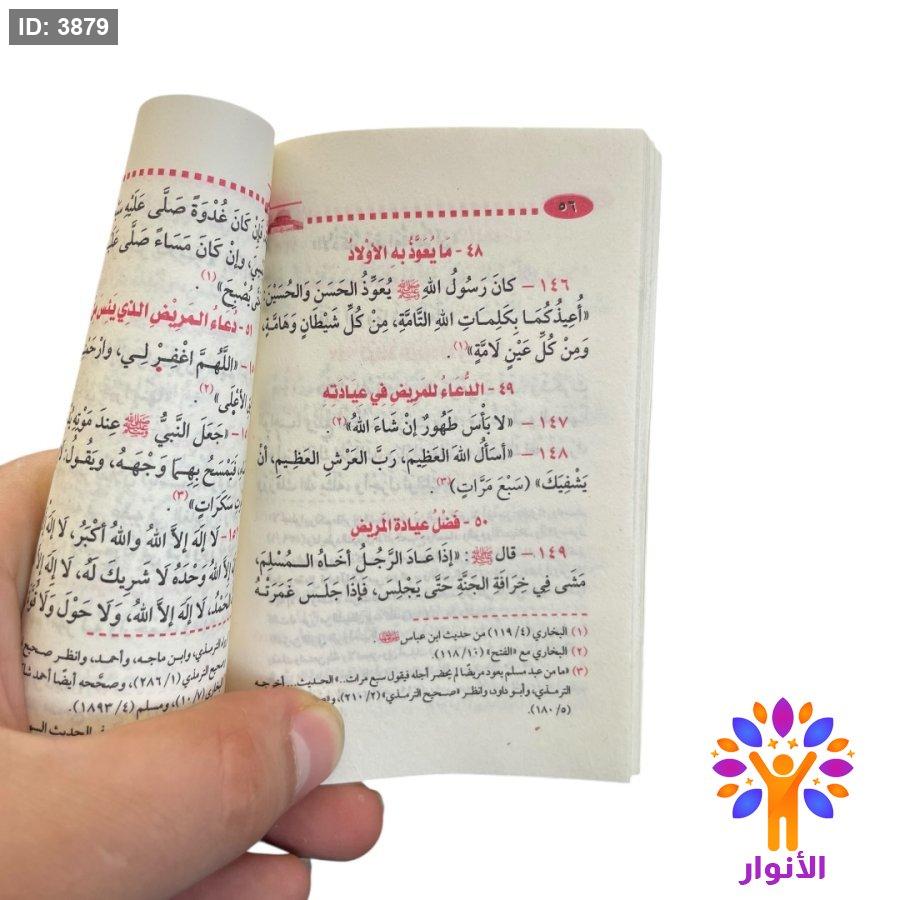 ID: 3879
٥٦
٤٨ - مَا يُعَوَّذُ بِهِ الأَوْلَادُ
١٤٦ – كَانَ رَسُولُ اللهِ ﷺ يُعَوِّذُ الحَسَنَ وَالحُسَيْنَ
«أُعِيذُكُمَا بِكَلِمَاتِ اللهِ التَّامَّةِ، مِنْ كُلِّ شَيْطَانٍ وَهَامَّةٍ،
وَمِنْ كُلِّ عَيْنٍ لَامَّةٍ»(١)
٤٩ - الدُّعَاءُ للمَرِيضِ فِي عِيَادَتِهِ
١٤٧ – «لا بَأْسَ طَهُورٌ إنْ شَاءَ اللهُ»(٢).
١٤٨ – «أَسْأَلُ اللهَ العَظِيمَ، رَبَّ العَرْشِ العَظِيمِ، أَنْ
يَشْفِيَكَ» (سَبْعَ مَرَّاتٍ)(٣).
٥٠ - فَضْلُ عِيَادَةِ المَرِيضِ
١٤٩ – قَالَ ﷺ: «إِذَا عَادَ الرَّجُلُ أَخَاهُ الـمُسْلِمَ،
مَشَى فِي خِرَافَةِ الجَنَّةِ حَتَّى يَجْلِسَ، فَإِذَا جَلَسَ غَمَرَتْهُ
(١) البخاري (٤/ ١١٩) من حديث ابن عباس
(٢) البخاري مع «الفتح» (١٠/ ١١٨).
(٣) «ما من عبد مسلم يعود مريضًا لم يحضر أجله فيقول سبع مرات..» الحديث... أخرجه
الترمذي، وأبو داود، وانظر «صحيح الترمذي» (٢/ ٢١٠)،
(٥/ ١٨٠).
فَإِنْ كَانَ غُدْوَةً صَلَّى عَلَيْهِ
وإنْ كَانَ مَسَاءً صَلَّى
يُصْبِحَ»(١)
٥١- دُعَاءُ المَرِيْضِ الذِي يَئِسَ
«اللَّهُمَّ اغْفِرْ لِي، وَارْحَمْ
الأَعْلَى»(٢)
«جَعَلَ النَّبِيُّ ﷺ عِنْدَ مَوْتِهِ
فَيَمْسَحُ بِهِمَا وَجْهَهُ، وَيَقُولُ:
سَكَرَاتٍ»(٣)
لَا إِلَهَ إِلاَّ اللهُ وَاللهُ أَكْبَرُ، لَا إِلَهَ
إِلاَّ اللهُ وَحْدَهُ لَا شَرِيكَ لَهُ، لَا إِلَهَ
لَا إِلَهَ إِلاَّ اللهُ، وَلَا حَوْلَ وَلَا
الترمذي، وابن ماجه، وأحمد، وانظر صحيح
الترمذي (١/ ٢٨٦)، وصححه أيضًا أحمد
(١٠/٧)، ومسلم (٤/ ١٨٩٣).
الحديث
الأنوار